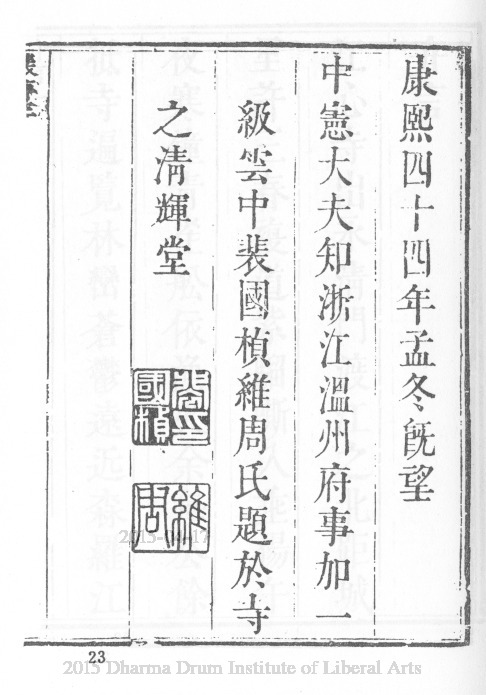 康熙四十四年孟冬旣望
中憲大夫知浙江溫州府事加一
級雲中裴國楨維周氏題於寺
之淸輝堂
裴印國楨
維周
2015-04-17
23
2015 Dharma Drum Institute of Liberal Arts